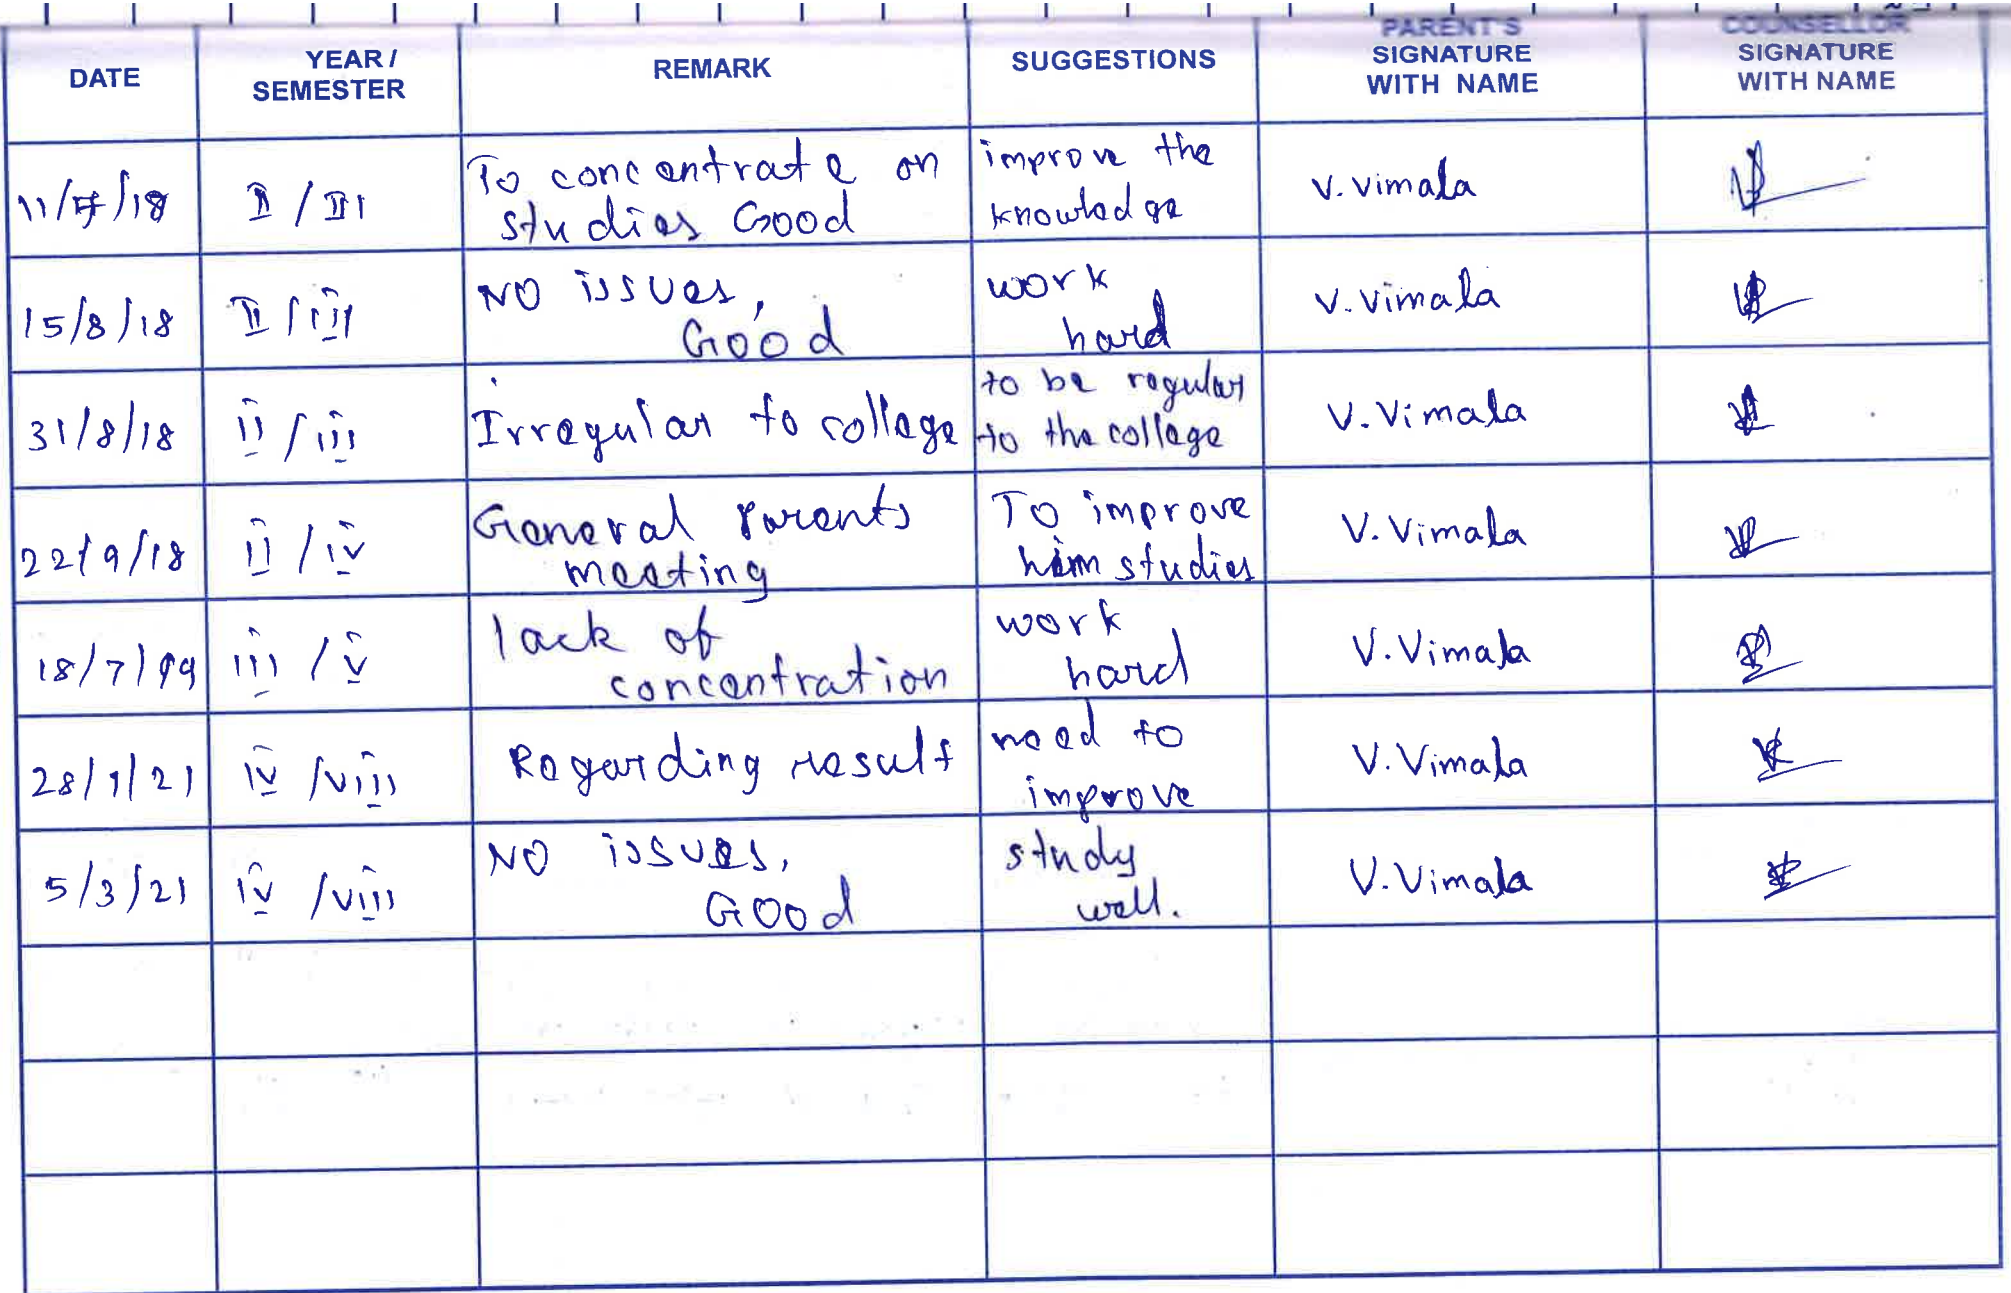 DATE
YEAR /
SEMESTER
REMARK
SUGGESTIONS
PARENT'S
SIGNATURE
WITH NAME
COUNSELLOR
SIGNATURE
WITH NAME
11/7/18
II / III
To concentrate on
studies Good
improve the
knowledge
V. Vimala
15/8/18
II / III
NO issues,
Good
work
hard
V. Vimala
31/8/18
II / III
Irregular to college
to be regular
to the college
V. Vimala
22/9/18
II / IV
General Parents
meeting
To improve
him studies
V. Vimala
18/7/19
III / V
lack of
concentration
work
hard
V. Vimala
28/1/21
IV / VIII
Regarding result
need to
improve
V. Vimala
5/3/21
IV / VIII
NO issues,
Good
study
well.
V. Vimala